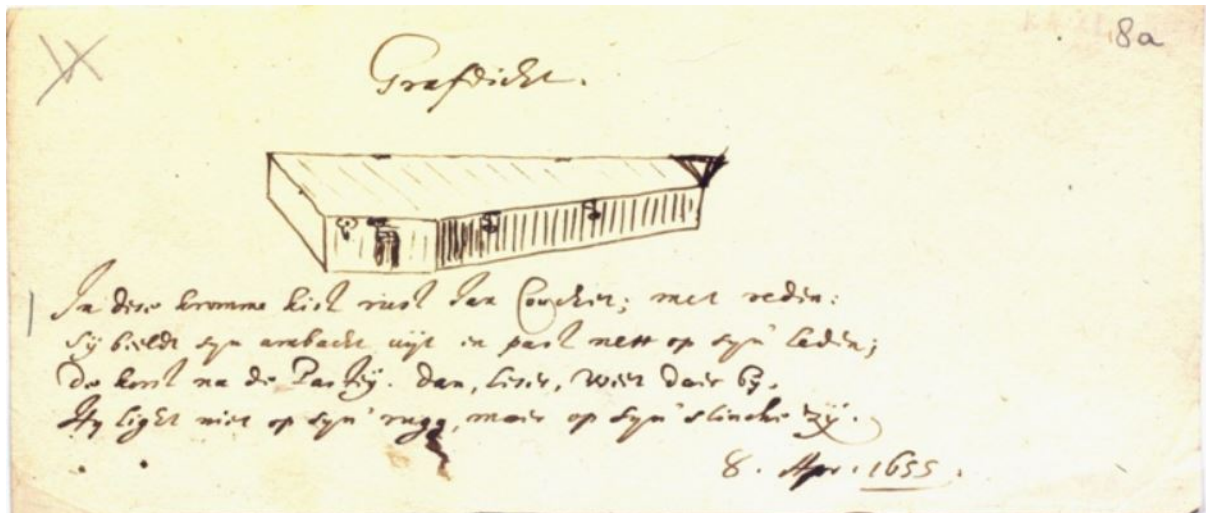 8a
Grafdicht.
In dese kromme kist rust Jan Couchet; met reden:
Sij beeldt syn ambacht uijt en past nett op syn' leden;
De korst na de Pasteij. Dan, Leser, weet daer bij,
Hy light niet op syn' rugg, maer op syn' slincke zij.
8. Apr. 1655.